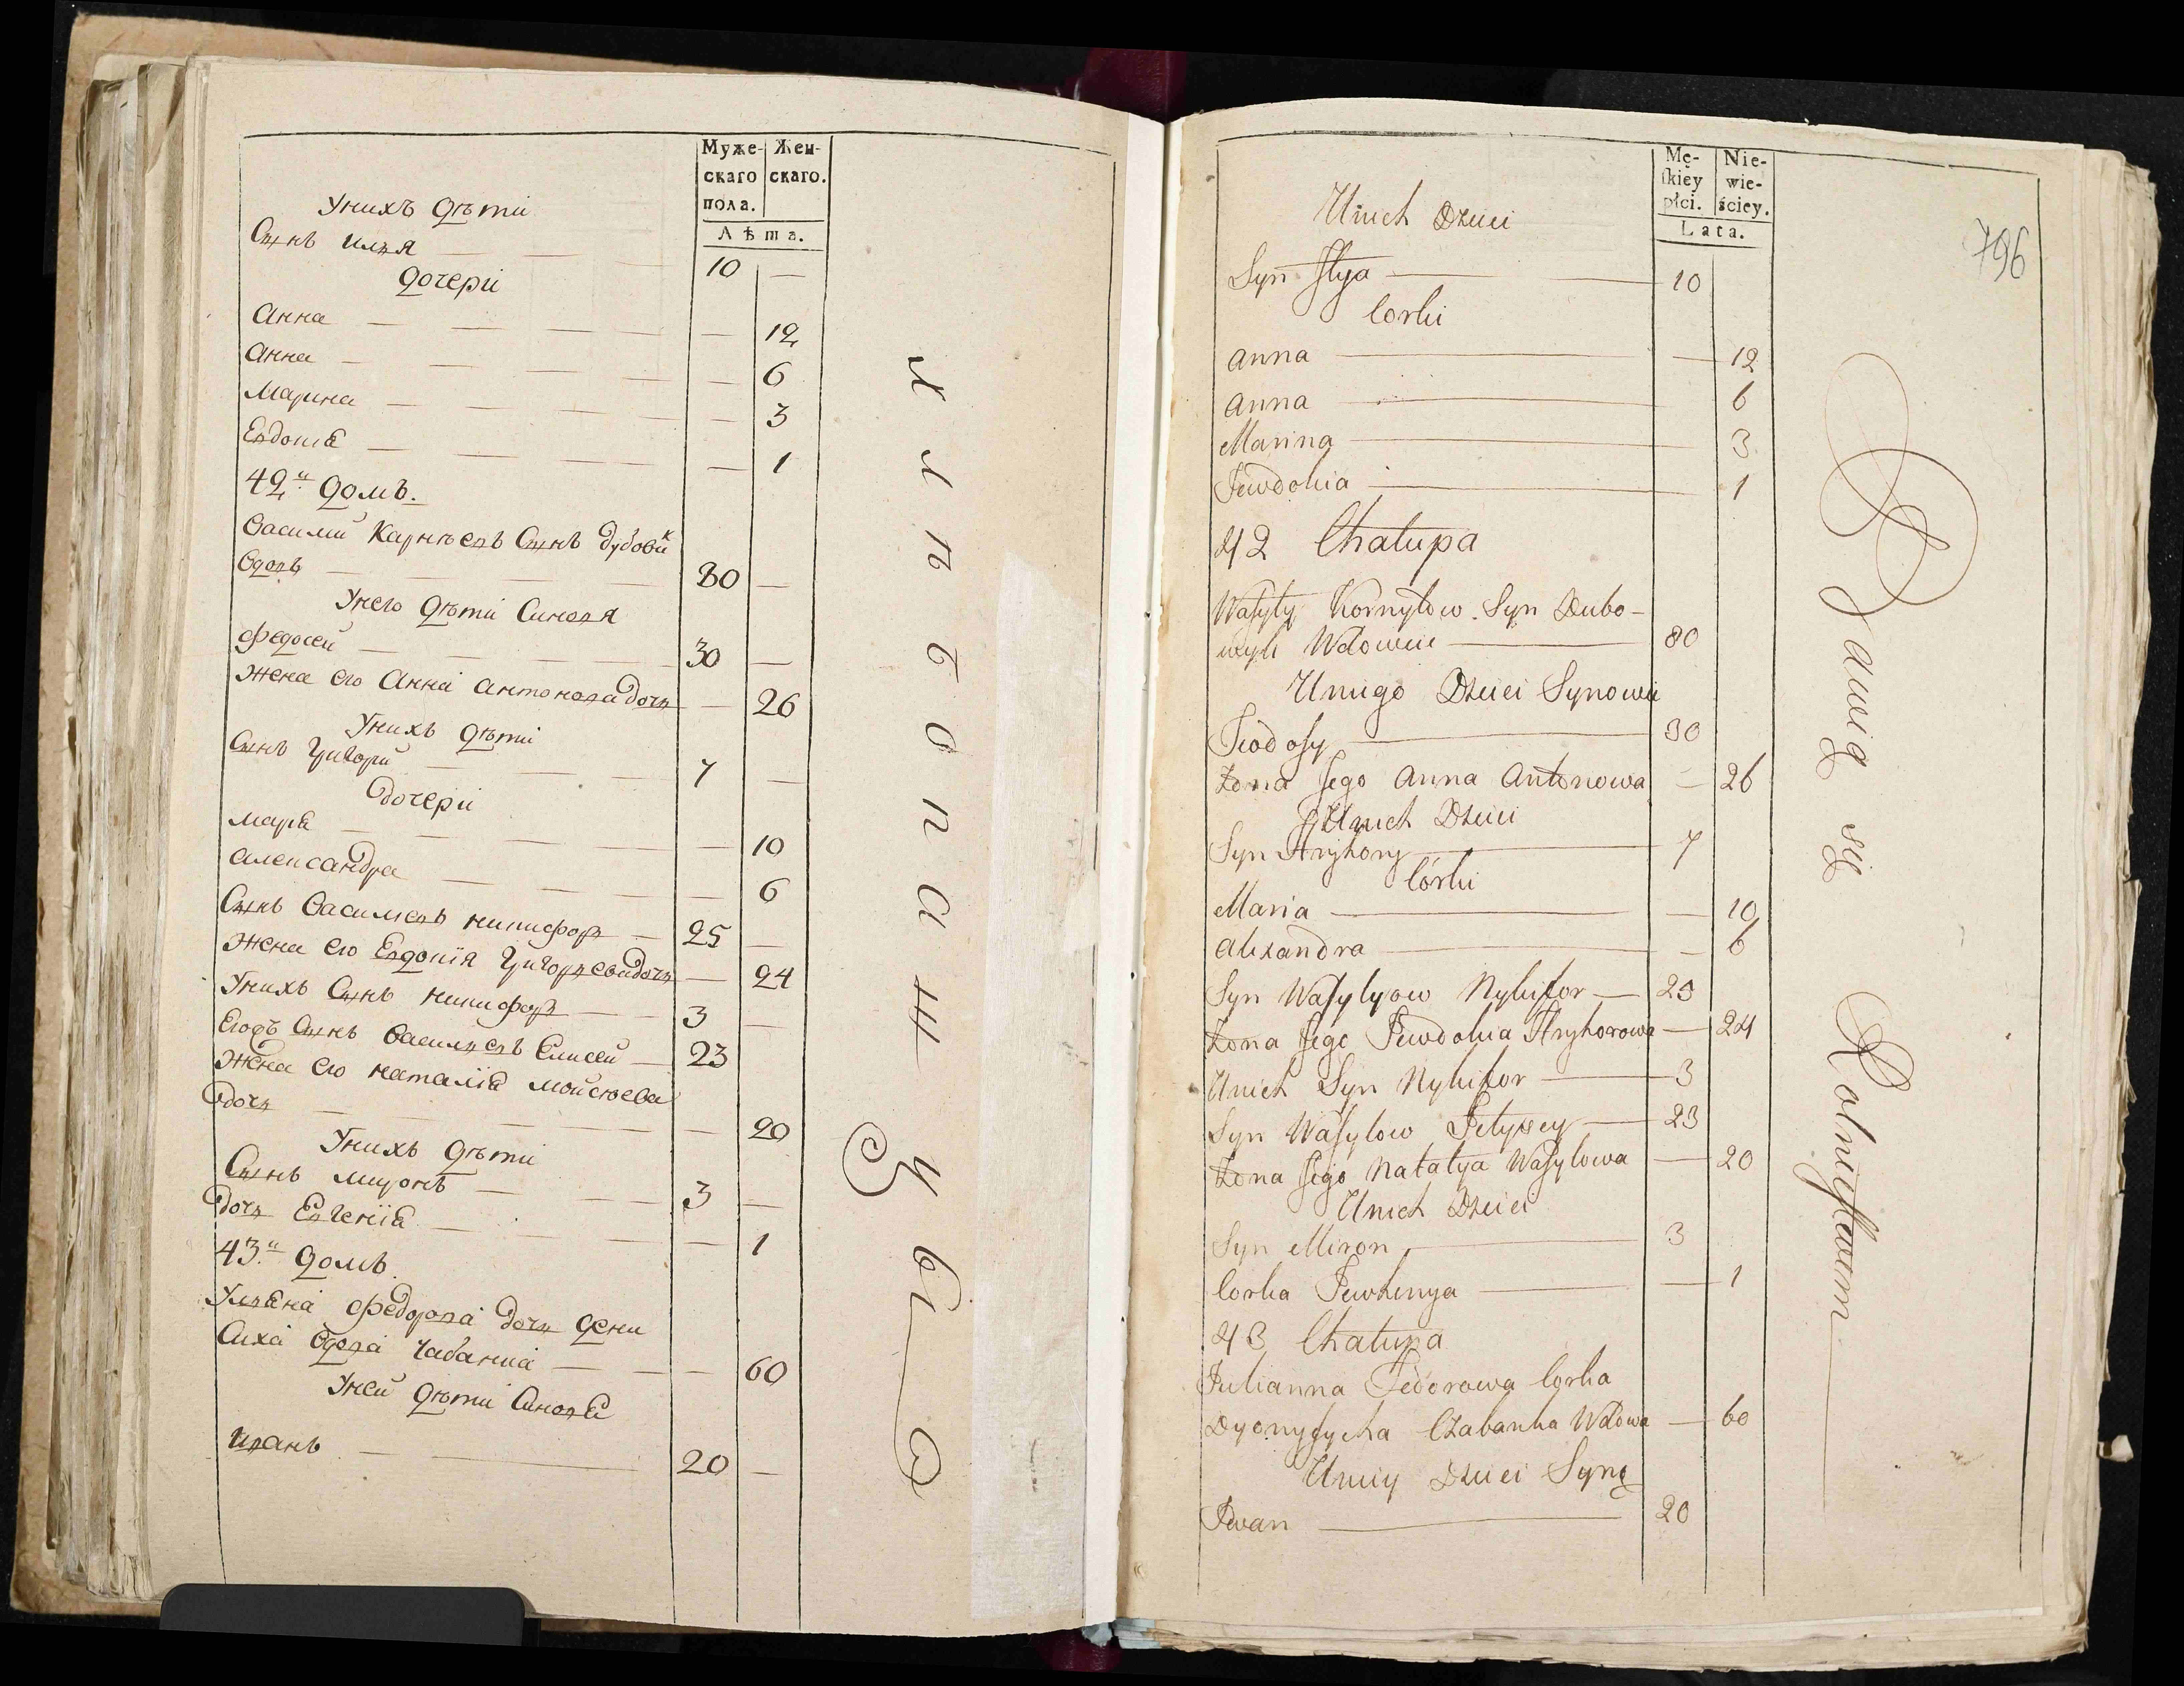 Муже-
скаго
пола.
Жен-
скаго.
Лѣта.
Унихъ дѣти
Сынъ илья 10 —
дочери
Анна — 12
Анна — 6
Марина — 3
Евдокіа — 1
42й домъ.
Василий Карнѣевъ Сынъ Дубовик
вдовъ 80 —
Унего дѣти Синовя
Федосей 30 —
Жена его Анна Антонова дочь — 26
Унихъ дѣти
Сынъ Григори 7 —
дочери
Мариа — 10
Александра — 6
Сынъ Василиевъ никифоръ 25 —
Жена его Евдокія Григорьева дочь — 24
Унихъ Сынъ никифоръ 3 —
Егожъ Сынъ Васильевъ Елисей 23
Жена его наталіа мойсѣева
дочь — 20
Унихъ дѣти
Сынъ миронъ 3 —
дочь Евгеніа — 1
43й домъ.
Ульяна Федорова дочь дени
сиха вдова чабанка — 60
Уней дѣти Синовя
иванъ 20 —
хлѣбопашествомъ
Mę-
skiey
płci.
Nie-
wie-
ściey.
Lata.
796
Unich Dzieci
Syn Ilya 10
Corki
Anna — 12
Anna 6
Marina 3
Jewdokia 1
42 Chałupa
Wasyly Kornyłow Syn Dubo-
wyk Wdowiec 80
Uniego Dzieci Synowie
Fiodosy 30
Żona Jego Anna Antonowa — 26
Unich Dzieci
Syn Hryhory 7
Córki
Maria — 10
Alexandra — 6
Syn Wasylyow Nykifor 25
Żona Jego Jewdokia Hryhorowa — 24
Unich Syn Nykifor 3
Syn Wasylow Jelysey 23
Żona Jego Natalya Wasylowa — 20
Unich Dzieci
Syn Miron 3
Corka Jewhenya — 1
43 Chałupa
Julianna Fedorowa Corka
Dyonysycha Czabanka Wdowa — 60
Uniey Dzieci Syny
Iwan 20
Bawią się Rolnictwem